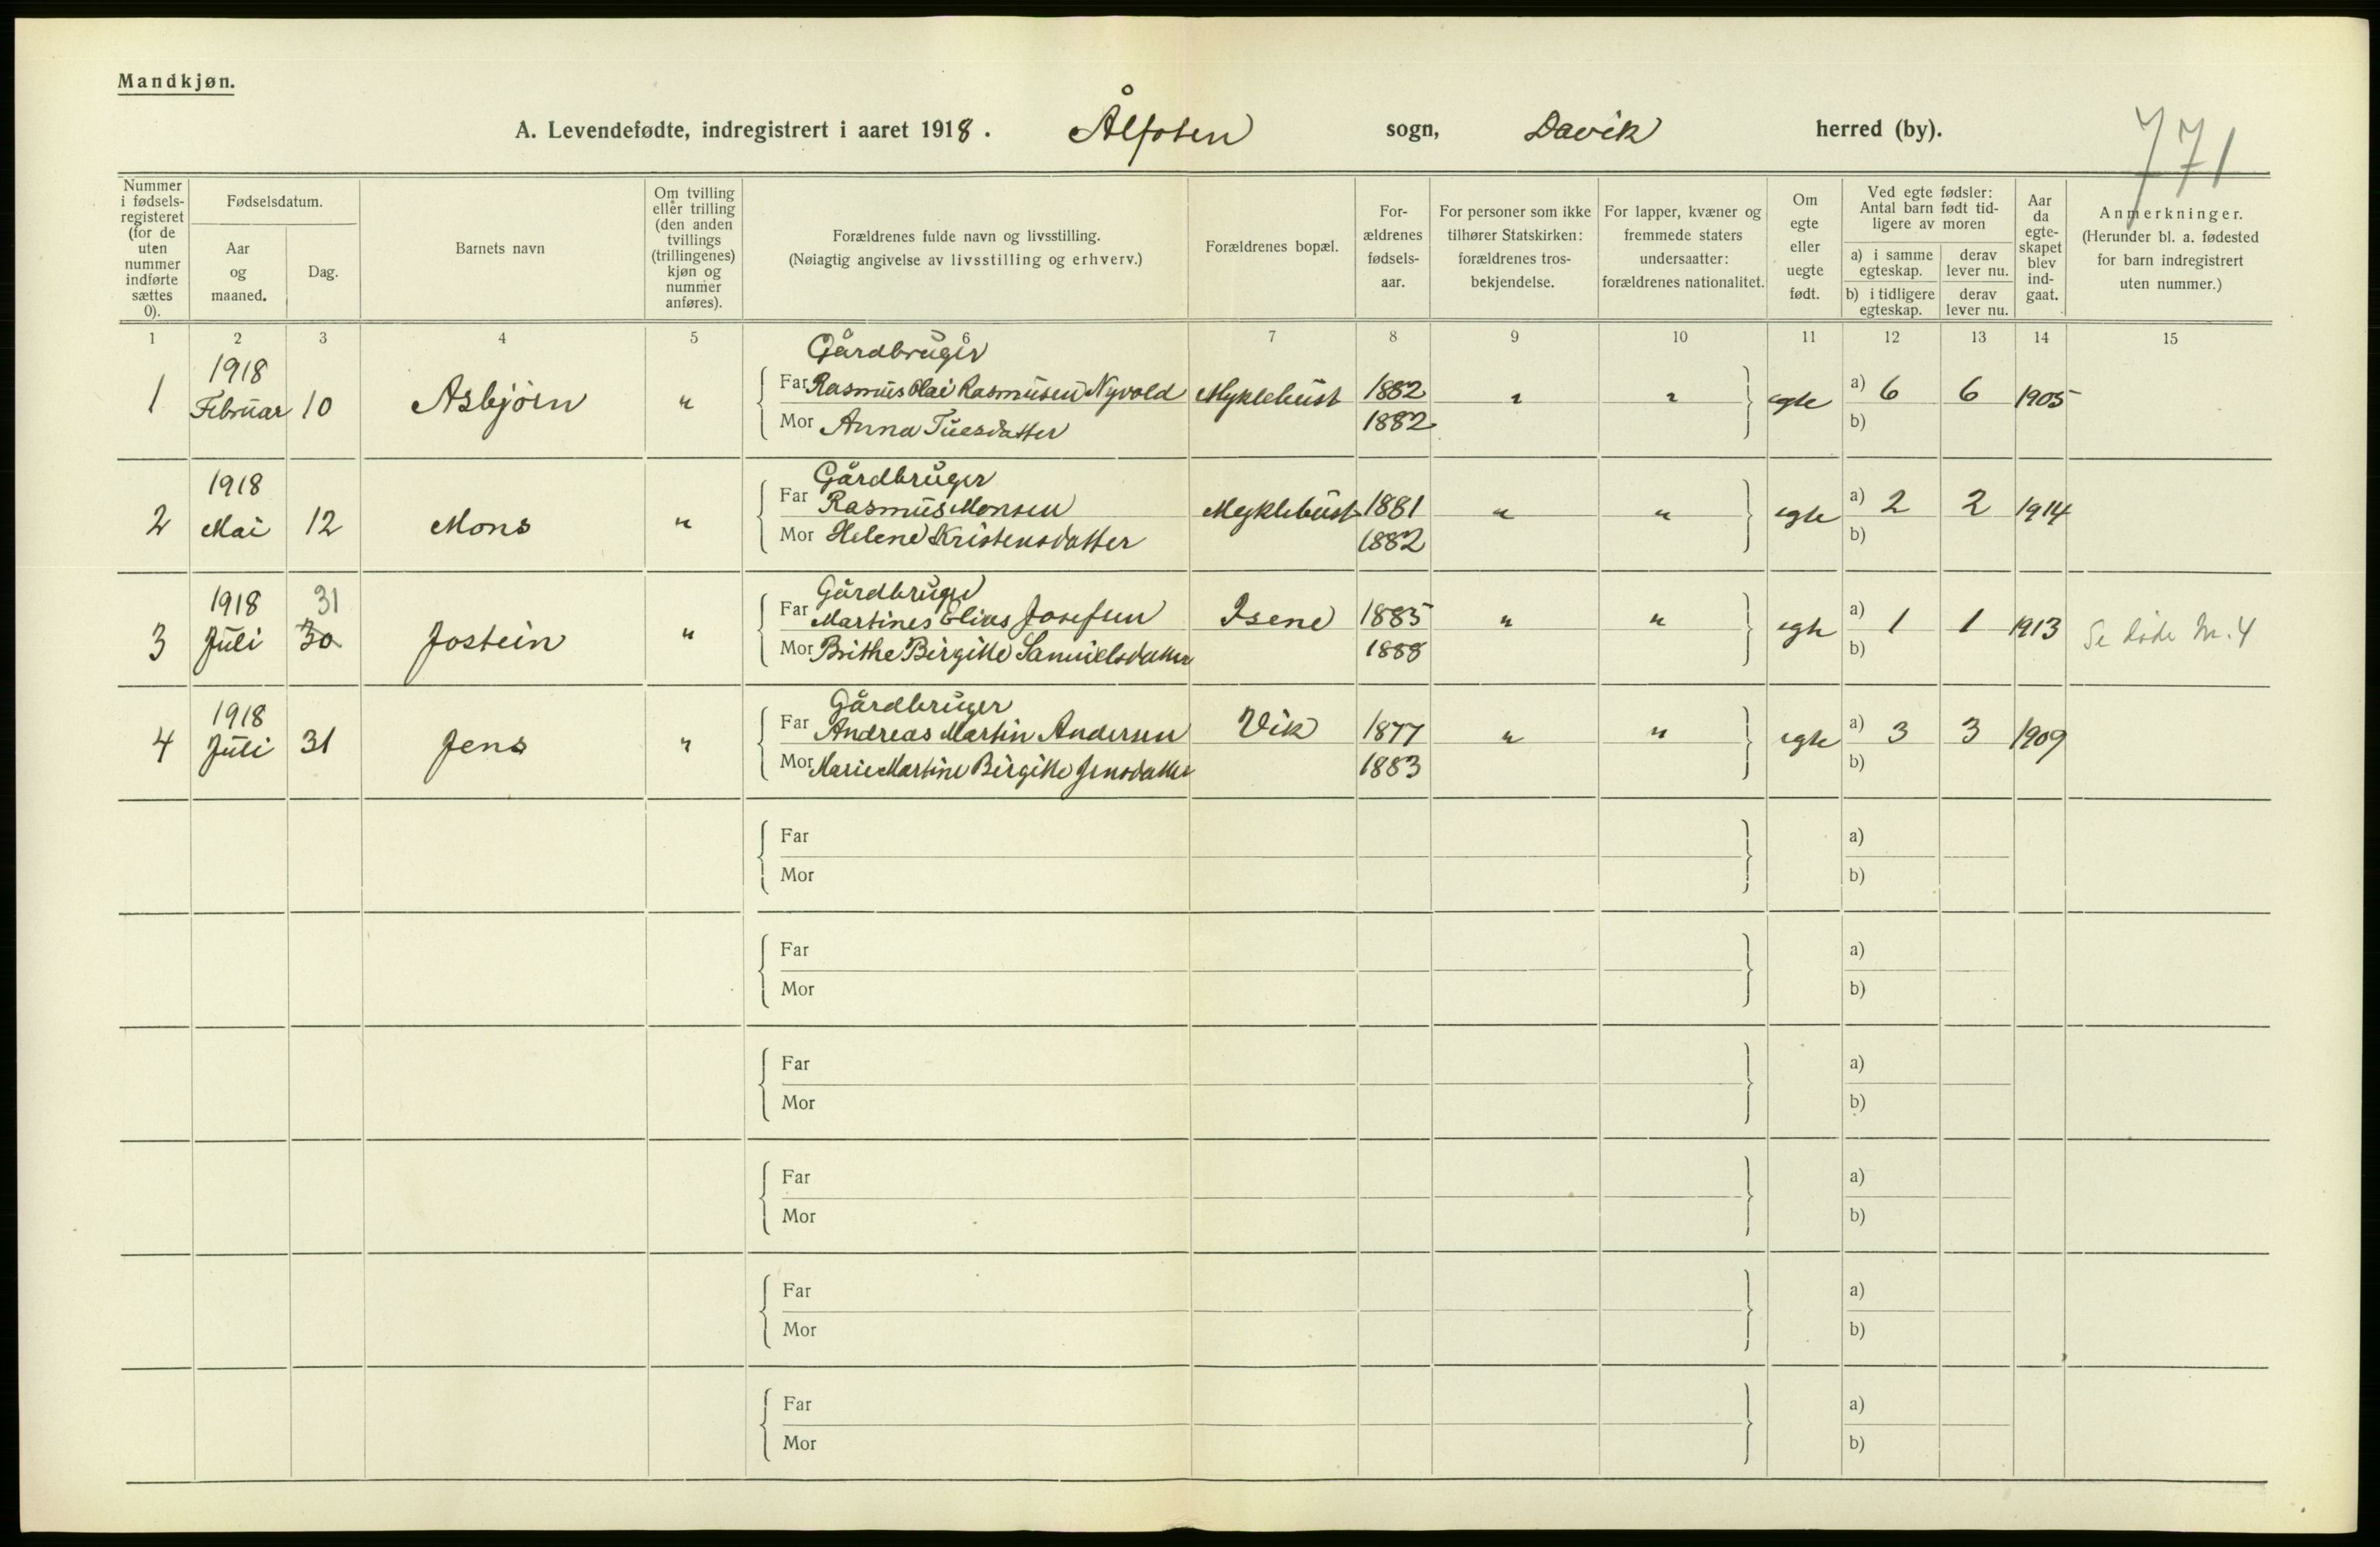 Mandkjøn.
A. Levendefødte, indregistrert i aaret 1918. Ålfoten sogn, Davik herred (by).
771
Nummer i fødsels-registeret (for de uten nummer indførte sættes 0).
Fødselsdatum.
Aar og maaned.
Dag.
Barnets navn
Om tvilling eller trilling (den anden tvillings (trillingenes) kjøn og nummer anføres).
Forældrenes fulde navn og livsstilling.
(Nøiagtig angivelse av livsstilling og erhverv.)
Forældrenes bopæl.
For-ældrenes fødsels-aar.
For personer som ikke tilhører Statskirken: forældrenes tros-bekjendelse.
For lapper, kvæner og fremmede staters undersaatter: forældrenes nationalitet.
Om egte eller uegte født.
Ved egte fødsler: Antal barn født tid-ligere av moren
a) i samme egteskap.
derav lever nu.
b) i tidligere egteskap.
derav lever nu.
Aar da egte-skapet blev ind-gaat.
Anmerkninger.
(Herunder bl. a. fødested for barn indregistrert uten nummer.)
1 2 3 4 5 6 7 8 9 10 11 12 13 14 15
Gårdbruger
1 1918 Februar 10 Asbjörn " Far Rasmus Olai Rasmusen Nyvold Myklebust 1882 " " egte a) 6 6 1905
Mor Anna Tuesdatter 1882 b)
Gårdbruger
2 1918 Mai 12 Mons " Far Rasmus Monsen Myklebust 1881 " " egte a) 2 2 1914
Mor Helene Kristensdatter 1882 b)
Gårdbruger
3 1918 Juli 31 30 Jostein " Far Martines Elias Josefsen Isene 1885 " " egte a) 1 1 1913 Se døde Nr. 4
Mor Brithe Birgitte Samuelsdatter 1888 b)
Gårdbruger
4 1918 Juli 31 Jens " Far Andreas Martin Andersen Vik 1877 " " egte a) 3 3 1909
Mor Marie Martine Birgitte Jensdatter 1883 b)
Far a)
Mor b)
Far a)
Mor b)
Far a)
Mor b)
Far a)
Mor b)
Far a)
Mor b)
Far a)
Mor b)